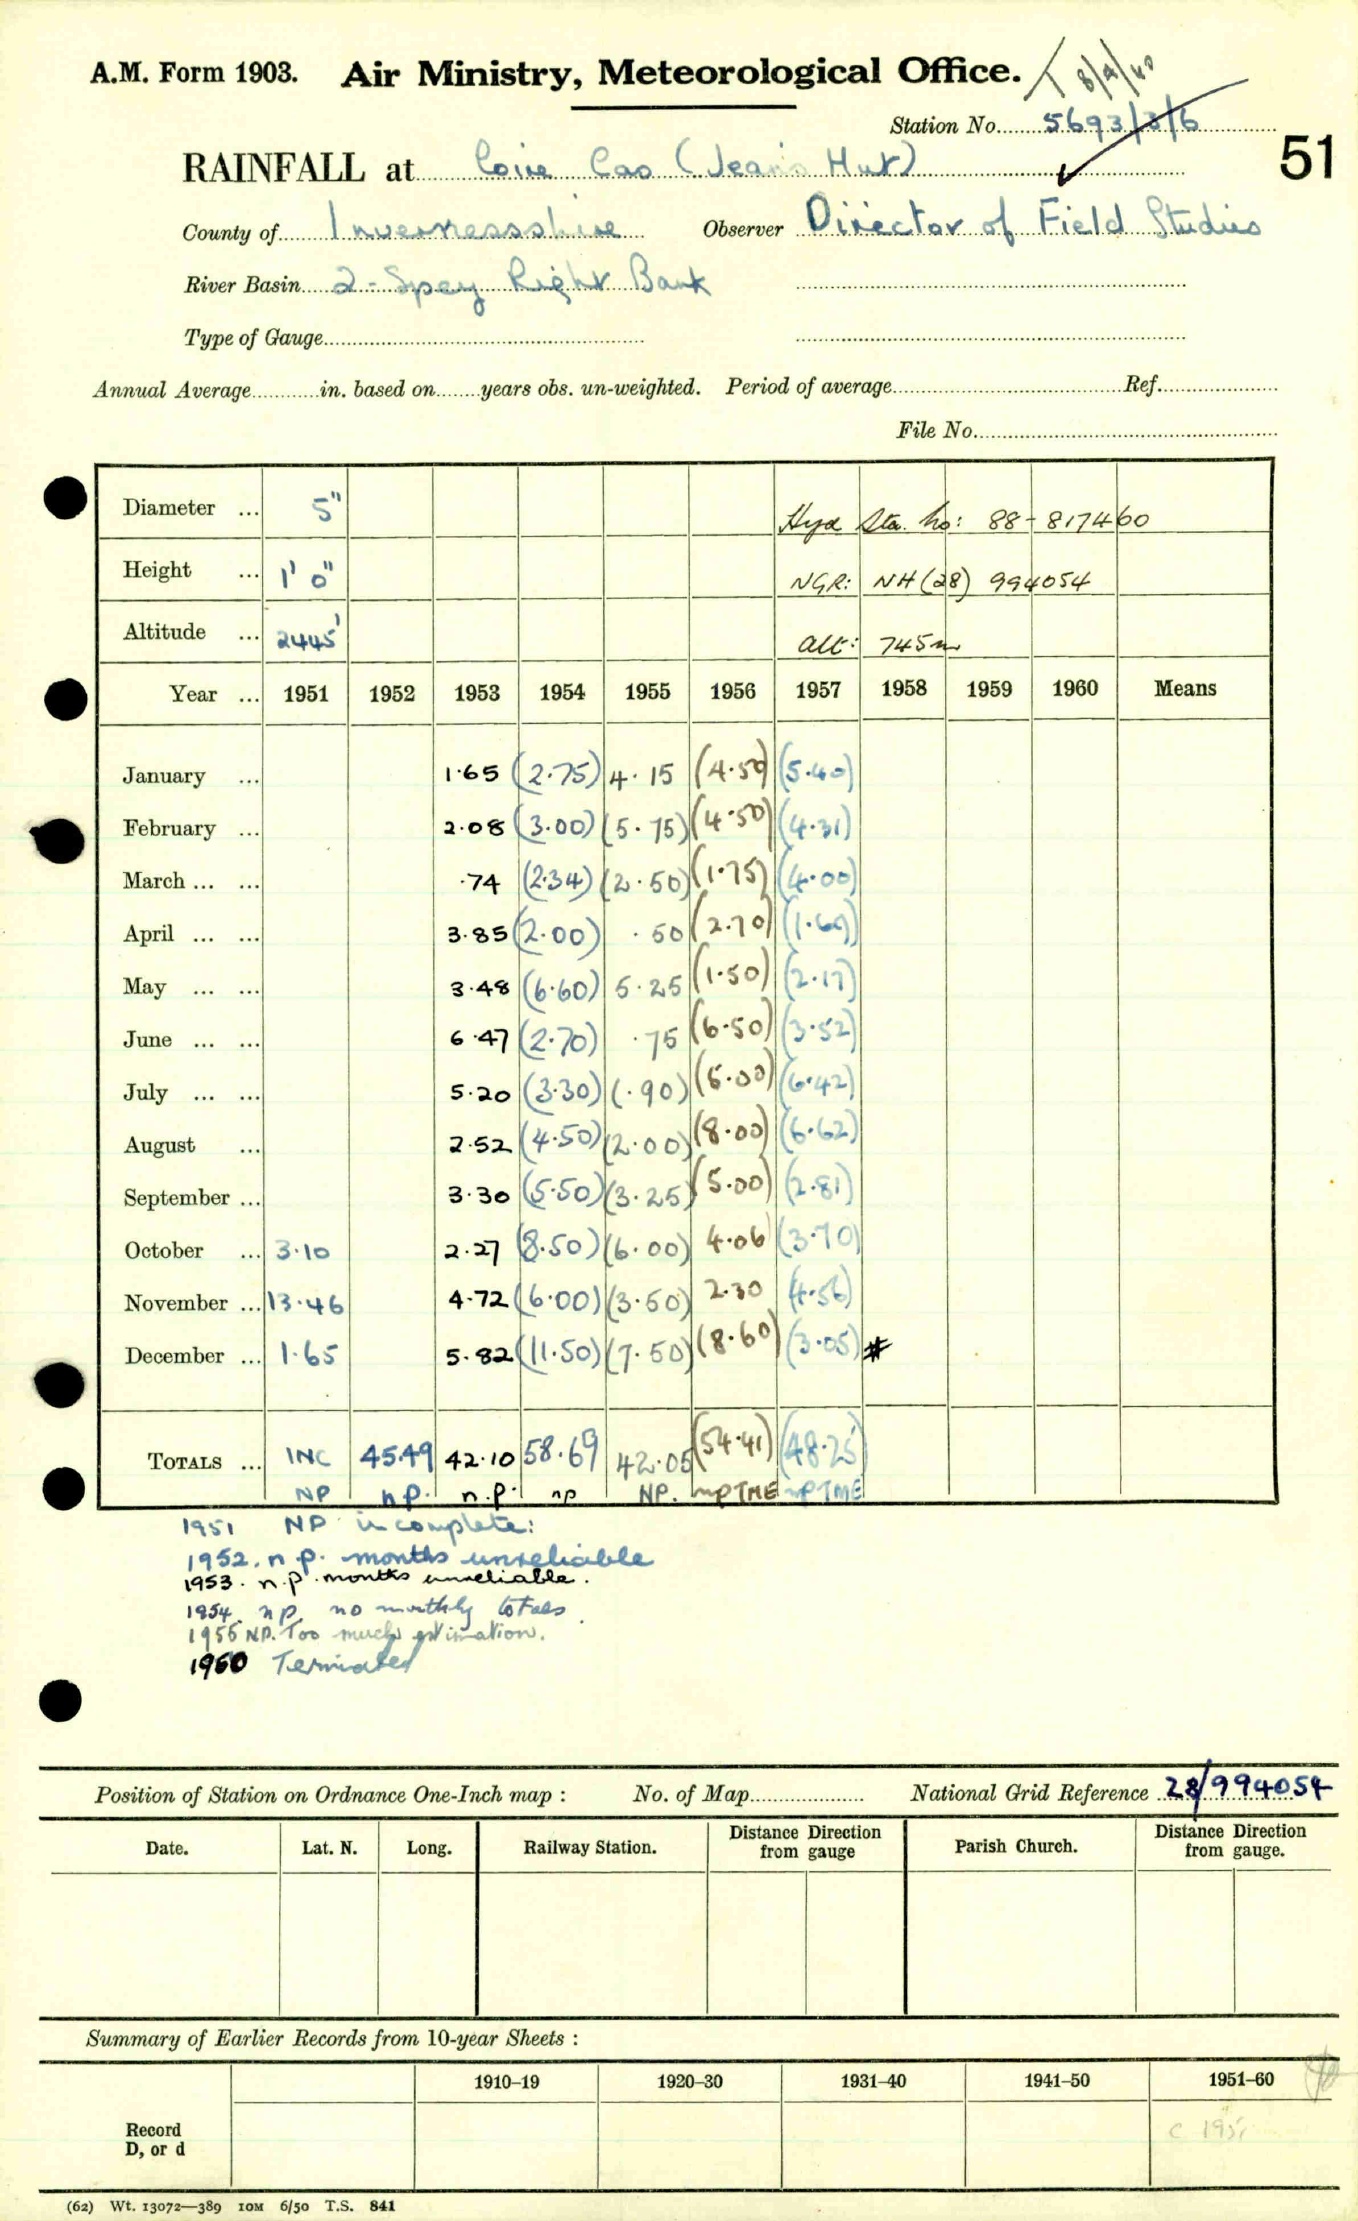 A.M. Form 1903. Air Ministry, Meteorological Office. T 8/9/60
Station No. 5693/3/6
51
RAINFALL at Coire Cas (Jean's Hut)
County of Invernessshire Observer Director of Field Studies
River Basin 2 - Spey Right Bank
Type of Gauge
Annual Average in. based on years obs. un-weighted. Period of average Ref.
File No.
Diameter ... 5" Hyd Sta. No: 88-817460
Height ... 1' 0" NGR: NH (28) 994054
Altitude ... 2445' alt: 745m
Year ... 1951 1952 1953 1954 1955 1956 1957 1958 1959 1960 Means
January ... 1.65 (2.75) 4.15 (4.50) (5.40)
February ... 2.08 (3.00) (5.75) (4.50) (4.31)
March ... ... .74 (2.34) (2.50) (1.75) (4.00)
April ... ... 3.85 (2.00) .50 (2.70) (1.69)
May ... ... 3.48 (6.60) 5.25 (1.50) (2.17)
June ... ... 6.47 (2.70) .75 (6.50) (3.52)
July ... ... 5.20 (3.30) (.90) (5.00) (6.42)
August ... 2.52 (4.50) (2.00) (8.00) (6.62)
September ... 3.30 (5.50) (3.25) (5.00) (2.81)
October ... 3.10 2.27 (8.50) (6.00) 4.06 (3.70)
November ... 13.46 4.72 (6.00) (3.50) 2.30 (4.56)
December ... 1.65 5.82 (11.50) (7.50) (8.60) (3.05) #
TOTALS ... INC 45.49 42.10 58.69 42.05 (54.41) (48.25)
NP n.p. n.p. np NP. np TME np TME
1951 NP incomplete:
1952. n.p. months unreliable
1953. n.p. months unreliable.
1954. np. no monthly totals.
1955 NP. Too much estimation.
1960 Terminated
Position of Station on Ordnance One-Inch map : No. of Map National Grid Reference 28/994054
Date. Lat. N. Long. Railway Station. Distance from Direction gauge Parish Church. Distance from Direction gauge.
Summary of Earlier Records from 10-year Sheets :
1910–19 1920–30 1931–40 1941–50 1951–60
Record
D, or d
c 1951
(62) Wt. 13072—389 10M 6/50 T.S. 841